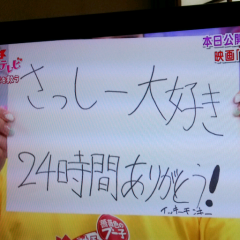 テレビ
本日公開
映画「
さっしー大好き
24時間ありがとう!